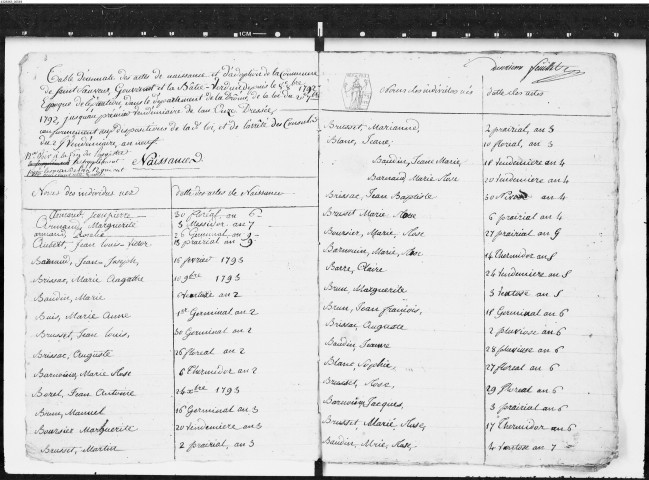 Table Décennale des actes de naissance et d'adoption de la Commune
de Saint Sauveur, Gouvernet et la Bâtie-Verdun depuis le
Epoque de l'exécution dans le département de la Drôme de la loi du
1792, jusqu'au premier vendemiaire de l'an Onze Dressée
conformement aux dispositions de lad. loi, et de l'arrêté des Consuls
du 25 Vendemiaire, an neuf
Naissances
Noms des individus nés
datte des actes de Naissance
Armand, Jean pierre
30 floréal an 6
Armand, Marguerite
5 Messidor an 7
Armand, Rosalie
Aubert, Jean Louis Victor
18 prairial an 9
Barnaud, Jean-Joseph,
15 fevrier 1793
Brissac, Marie Angathe
10 9bre 1793
Baudin, Marie
Ventose an 2
Buis, Marie Anne
1er Germinal an 2
Brusset, Jean Louis,
30 Germinal an 2
Brissac, Auguste
26 floreal an 2
Barnouin, Marie Rose
6 Thermidor an 2
Borel, Jean Antoine
24 xbre 1793
Brun, Manuel
16 Germinal an 3
Boursier Marguerite
20 vendemiere an 3
Brusset, Martin
2 prairial, an 3
Deuxieme feuillet
Noms des individus nés
datte des actes
Brusset, Marianne
2 prairial, an 3
Blanc, Jeane,
10 floreal, an 3
Baudin, Jeane Marie,
18 vendemiere an 4
Barnaud, Marie Rose
20 vendemiere an 4
Brissac, Jean Baptiste
30 Nivose an 4
Brusset Marie Rose
6 prairial an 4
Boursier, Marie, Rose
27 prairial an 4
Barnouin, Marie, Rose
14 Thermidor an 5
Barre, Claire
26 vendemiere an 5
Brun, Marguerite
3 Ventose an 5
Brun, Jean François,
18 Germinal an 6
Brissac, Auguste
2 pluviose an 6
Baudin, Jeanne
28 pluviose an 6
Blanc, Sophie,
27 floreal an 6
Brusset, Rose,
29 floreal an 6
Barnouin, Jacques,
3 prairial an 6
Brusset, Marie, Rose,
17 Thermidor an 6
Baudin, Marie, Rose,
Ventose an 7